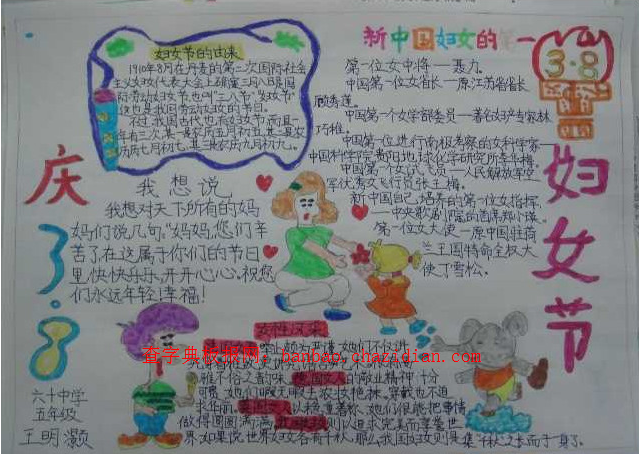 妇女节的由来
1910年8月在丹麦的第二次国际社会
主义妇女代表大会上确定三八日是国
际劳动妇女节,也叫"三八节","妇女节"
这也是我国劳动妇女的节日。
不过,我国古代也有妇女节,而且一
年有三次:其一是农历五月初五,其二是农
历六月初七,其三是农历九月初九。
新中国妇女的第一
第一位女中将——聂力。
中国第一位女省长——原江苏省省长
顾秀莲。
中国第一个女学部委员——著名妇产专家林
巧稚。
中国第一位进行南极考察的女科学家——
中国科学院贵阳地球化学研究所李华梅。
中国第一个女试飞员——人民解放军空
军优秀女飞行员张玉梅。
新中国自己培养的第一位女指挥
——中央歌剧院的首席郑小瑛。
第一位女大使——原中国驻荷
兰王国特命全权大
使丁雪松。
3·8
妇女节
庆3·8
我想说
我想对天下所有的妈
妈们说几句:"妈妈,您们辛
苦了,在这属于你们的节日
里快快乐乐,开开心心,祝您
们永远年轻!幸福!
女性风采
雅不俗之韵味,德国女人的敬业精神十分
可嘉,她们
求华丽。英国女人以
做得圆圆满满,
界,如果说世界妇女各有千秋,那么我国妇女则是集千秋之长而于一身了。
查字典板报网:banbao.chazidian.com
六十中学
五年级
王明灏